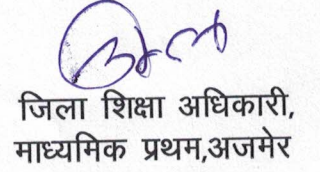 जिला शिक्षा अधिकारी,
माध्यमिक प्रथम,अजमेर